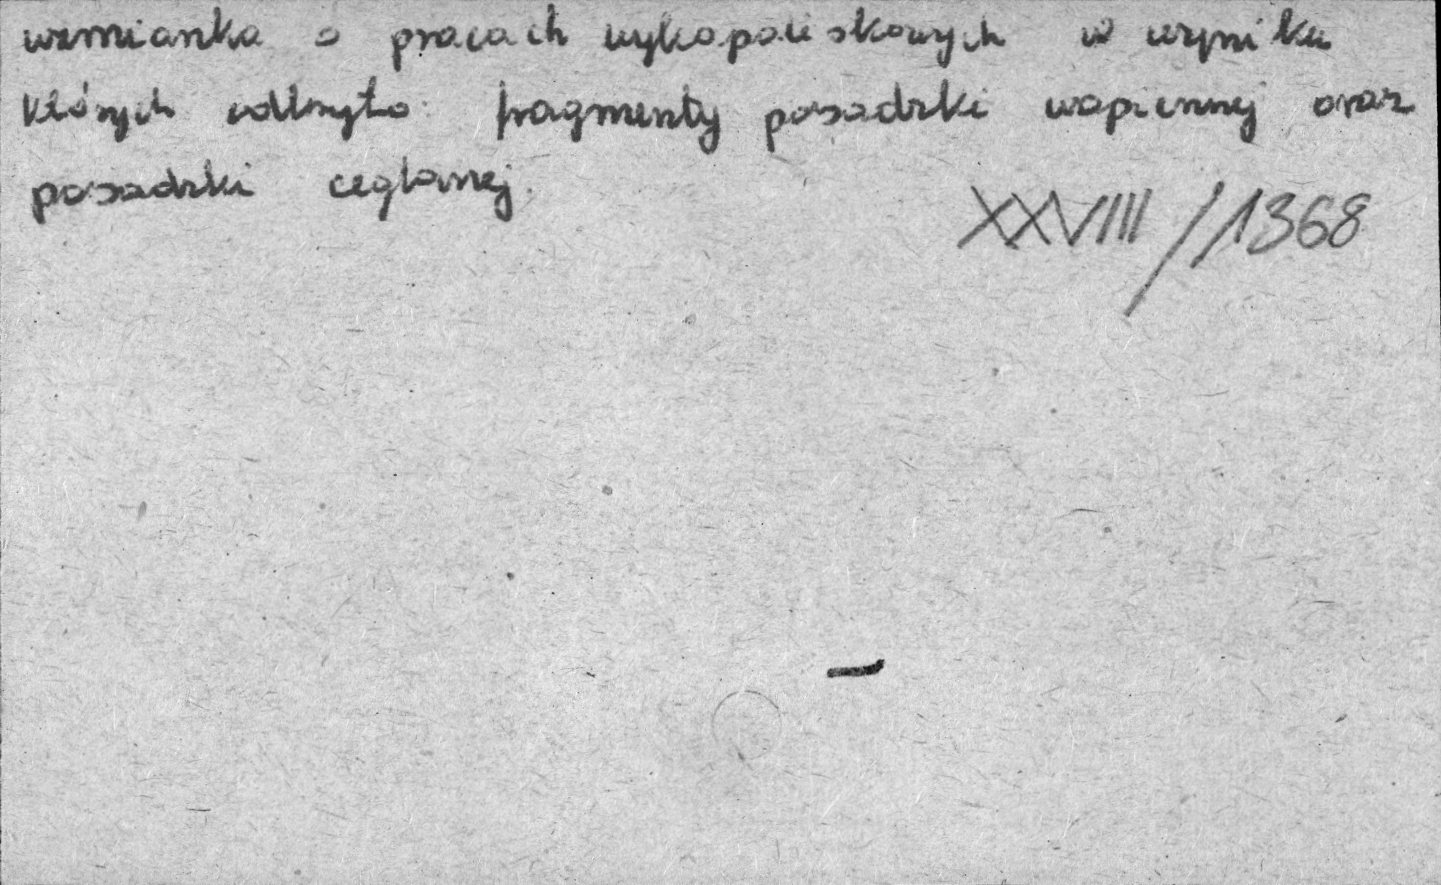 wzmianka o pracach wykopaliskowych w wyniku
których odkryto fragmenty posadzki wapiennej oraz
posadzki ceglanej.
XXVIII / 1368